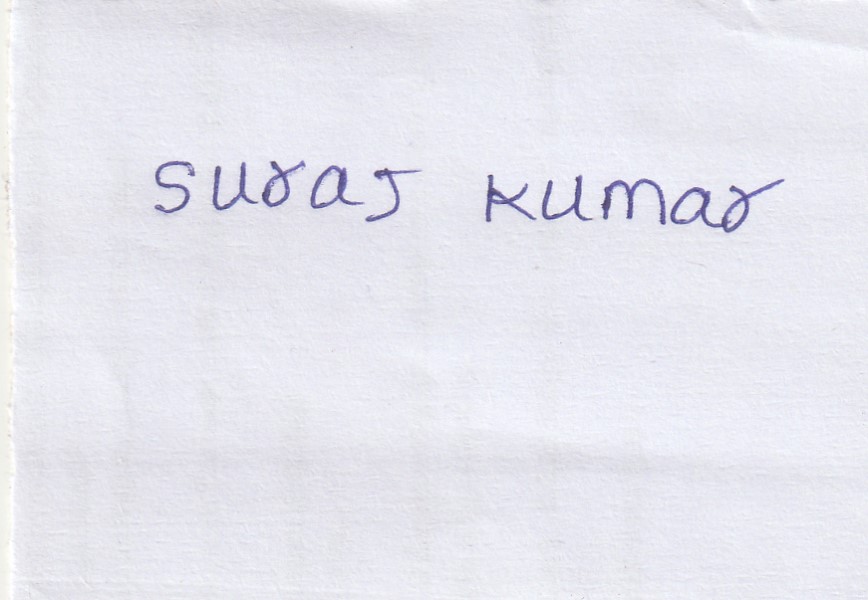 Suraj Kumar